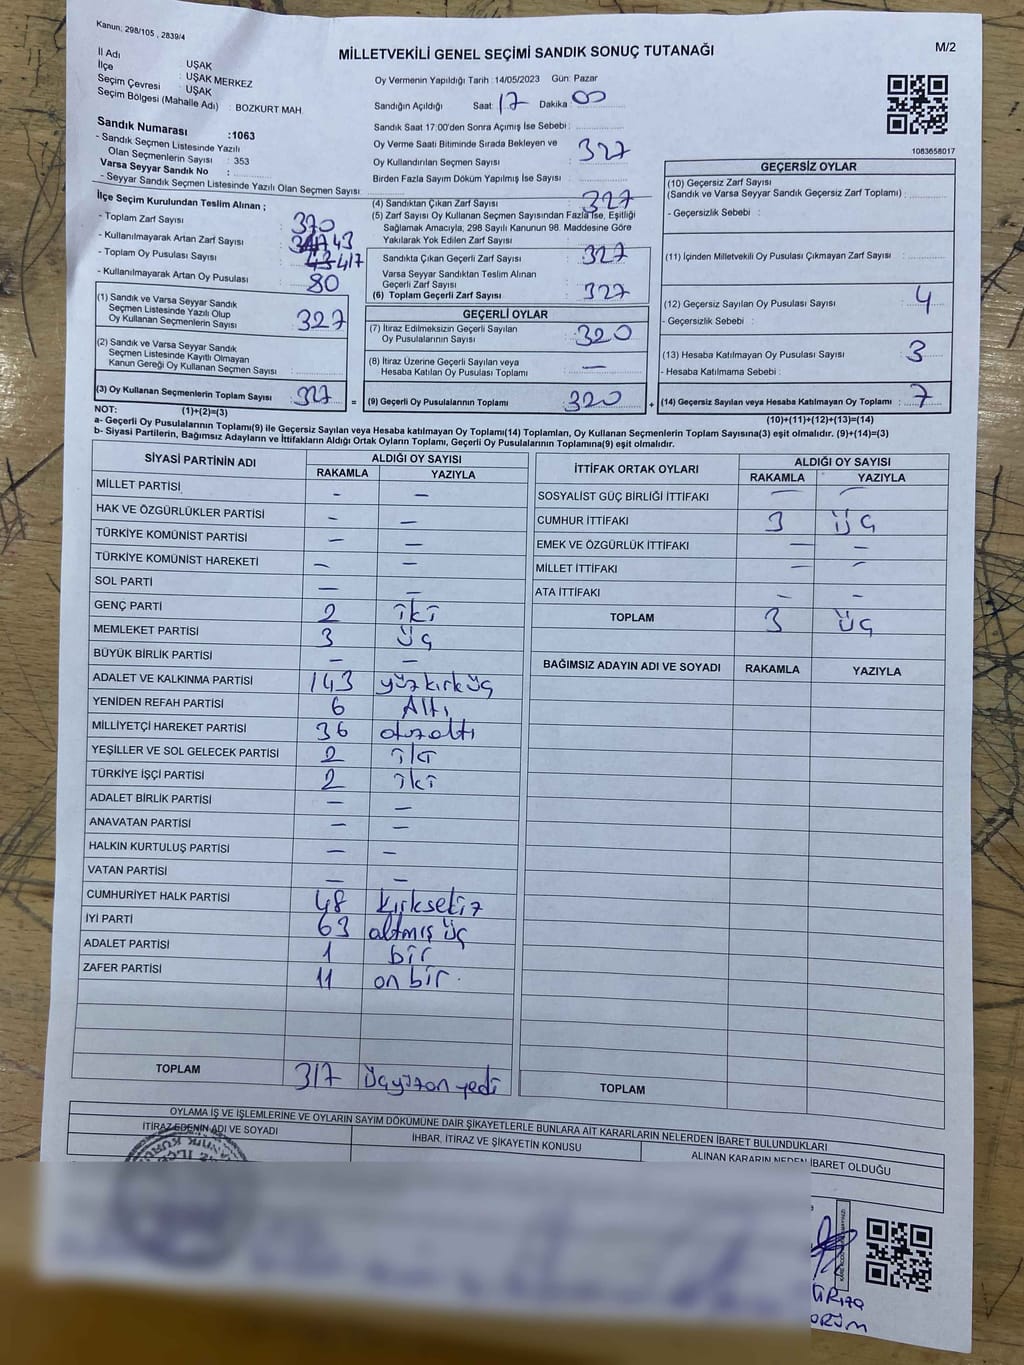 Kanun: 298/105 , 2839/4
MİLLETVEKİLİ GENEL SEÇİMİ SANDIK SONUÇ TUTANAĞI
M/2
İl Adı : UŞAK
İlçe : UŞAK MERKEZ
Seçim Çevresi : UŞAK
Seçim Bölgesi (Mahalle Adı) : BOZKURT MAH.
Sandık Numarası :1063
- Sandık Seçmen Listesinde Yazılı
Olan Seçmenlerin Sayısı : 353
Varsa Seyyar Sandık No :
- Seyyar Sandık Seçmen Listesinde Yazılı Olan Seçmen Sayısı
Oy Vermenin Yapıldığı Tarih :14/05/2023 Gün: Pazar
Sandığın Açıldığı Saat 17 Dakika 00
Sandık Saat 17:00'den Sonra Açımış İse Sebebi :
Oy Verme Saati Bitiminde Sırada Bekleyen ve
Oy Kullandırılan Seçmen Sayısı : 327
Birden Fazla Sayım Döküm Yapılmış İse Sayısı :
1083658017
İlçe Seçim Kurulundan Teslim Alınan ;
- Toplam Zarf Sayısı : 370
- Kullanılmayarak Artan Zarf Sayısı : 43
- Toplam Oy Pusulası Sayısı : 417
- Kullanılmayarak Artan Oy Pusulası : 80
(1) Sandık ve Varsa Seyyar Sandık
Seçmen Listesinde Yazılı Olup
Oy Kullanan Seçmenlerin Sayısı : 327
(2) Sandık ve Varsa Seyyar Sandık
Seçmen Listesinde Kayıtlı Olmayan
Kanun Gereği Oy Kullanan Seçmen Sayısı :
(3) Oy Kullanan Seçmenlerin Toplam Sayısı : 327 =
(4) Sandıktan Çıkan Zarf Sayısı : 327
(5) Zarf Sayısı Oy Kullanan Seçmen Sayısından Fazla İse, Eşitliği
Sağlamak Amacıyla, 298 Sayılı Kanunun 98. Maddesine Göre
Yakılarak Yok Edilen Zarf Sayısı :
Sandıkta Çıkan Geçerli Zarf Sayısı : 327
Varsa Seyyar Sandıktan Teslim Alınan
Geçerli Zarf Sayısı :
(6) Toplam Geçerli Zarf Sayısı : 327
GEÇERLİ OYLAR
(7) İtiraz Edilmeksizin Geçerli Sayılan
Oy Pusulalarının Sayısı : 320
(8) İtiraz Üzerine Geçerli Sayılan veya
Hesaba Katılan Oy Pusulası Toplamı : —
(9) Geçerli Oy Pusulalarının Toplamı : 320 +
GEÇERSİZ OYLAR
(10) Geçersiz Zarf Sayısı
(Sandık ve Varsa Seyyar Sandık Geçersiz Zarf Toplamı) :
- Geçersizlik Sebebi :
(11) İçinden Milletvekili Oy Pusulası Çıkmayan Zarf Sayısı :
(12) Geçersiz Sayılan Oy Pusulası Sayısı : 4
- Geçersizlik Sebebi :
(13) Hesaba Katılmayan Oy Pusulası Sayısı : 3
- Hesaba Katılmama Sebebi :
(14) Geçersiz Sayılan veya Hesaba Katılmayan Oy Toplamı : 7
NOT: (1)+(2)=(3)
(10)+(11)+(12)+(13)=(14)
a- Geçerli Oy Pusulalarının Toplamı(9) ile Geçersiz Sayılan veya Hesaba katılmayan Oy Toplamı(14) Toplamları, Oy Kullanan Seçmenlerin Toplam Sayısına(3) eşit olmalıdır. (9)+(14)=(3)
b- Siyasi Partilerin, Bağımsız Adayların ve İttifakların Aldığı Ortak Oyların Toplamı, Geçerli Oy Pusulalarının Toplamına(9) eşit olmalıdır.
SİYASİ PARTİNİN ADI ALDIĞI OY SAYISI
RAKAMLA YAZIYLA
MİLLET PARTİSİ - —
HAK VE ÖZGÜRLÜKLER PARTİSİ - —
TÜRKİYE KOMÜNİST PARTİSİ — —
TÜRKİYE KOMÜNİST HAREKETİ — —
SOL PARTİ — —
GENÇ PARTİ 2 iki
MEMLEKET PARTİSİ 3 üç
BÜYÜK BİRLİK PARTİSİ — —
ADALET VE KALKINMA PARTİSİ 143 yüzkırküç
YENİDEN REFAH PARTİSİ 6 Altı
MİLLİYETÇİ HAREKET PARTİSİ 36 otuzaltı
YEŞİLLER VE SOL GELECEK PARTİSİ 2 iki
TÜRKİYE İŞÇİ PARTİSİ 2 iki
ADALET BİRLİK PARTİSİ — —
ANAVATAN PARTİSİ — —
HALKIN KURTULUŞ PARTİSİ — —
VATAN PARTİSİ — —
CUMHURİYET HALK PARTİSİ 48 kırksekiz
İYİ PARTİ 63 altmış üç
ADALET PARTİSİ 1 bir
ZAFER PARTİSİ 11 on bir.
TOPLAM 317 üçyüzon yedi
İTTİFAK ORTAK OYLARI ALDIĞI OY SAYISI
RAKAMLA YAZIYLA
SOSYALİST GÜÇ BİRLİĞİ İTTİFAKI — —
CUMHUR İTTİFAKI 3 üç
EMEK VE ÖZGÜRLÜK İTTİFAKI — —
MİLLET İTTİFAKI — —
ATA İTTİFAKI - —
TOPLAM 3 üç
BAĞIMSIZ ADAYIN ADI VE SOYADI RAKAMLA YAZIYLA
TOPLAM
OYLAMA İŞ VE İŞLEMLERİNE VE OYLARIN SAYIM DÖKÜMÜNE DAİR ŞİKAYETLERLE BUNLARA AİT KARARLARIN NELERDEN İBARET BULUNDUKLARI
İTİRAZ EDENİN ADI VE SOYADI
İHBAR, İTİRAZ VE ŞİKAYETİN KONUSU
ALINAN KARARIN NEDEN İBARET OLDUĞU